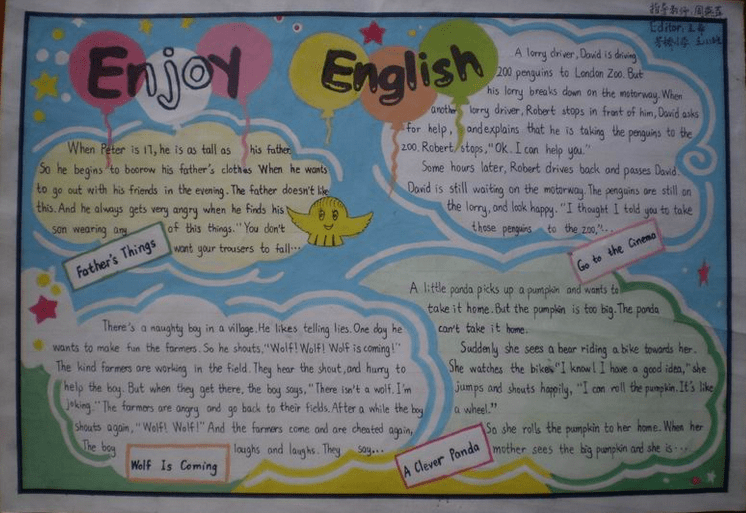 Enjoy English
指导教师:周
Editor:王
When Peter is 17, he is as tall as his father.
So he begins to boorow his father's clothes When he wants
to go out with his friends in the evening. The father doesn't like
this. And he always gets very angry when he finds his
son wearing any of this things. "You don't
want your trousers to fall...
Father's Things
A lorry driver, David is driving
200 penguins to London Zoo. But
his lorry breaks down on the motorway. When
another lorry driver, Robert stops in front of him, David asks
for help, and explains that he is taking the penguins to the
200. Robert stops, "OK. I can help you."
Some hours later, Robert drives back and passes David.
David is still waiting on the motorway. The penguins are still on
the lorry, and look happy. "I thought I told you to take
those penguins to the 200,"...
Go to the Cinema
There's a naughty boy in a village. He likes telling lies. One day he
wants to make fun the farmers. So he shouts, "Wolf! Wolf! Wolf is coming!"
The kind farmers are working in the field. They hear the shout, and hurry to
help the boy. But when they get there, the boy says, "There isn't a wolf. I'm
joking." The farmers are angry and go back to their fields. After a while the boy
shouts again, "Wolf! Wolf!" And the farmers come and are cheated again,
The boy laughs and laughs. They say...
Wolf Is Coming
A little panda picks up a pumpkin and wants to
take it home. But the pumpkin is too big. The panda
can't take it home.
Suddenly she sees a bear riding a bike towards her.
She watches the bike. "I know! I have a good idea," she
jumps and shouts happily, "I can roll the pumpkin. It's like
a wheel."
So she rolls the pumpkin to her home. When her
mother sees the big pumpkin and she is...
A Clever Panda